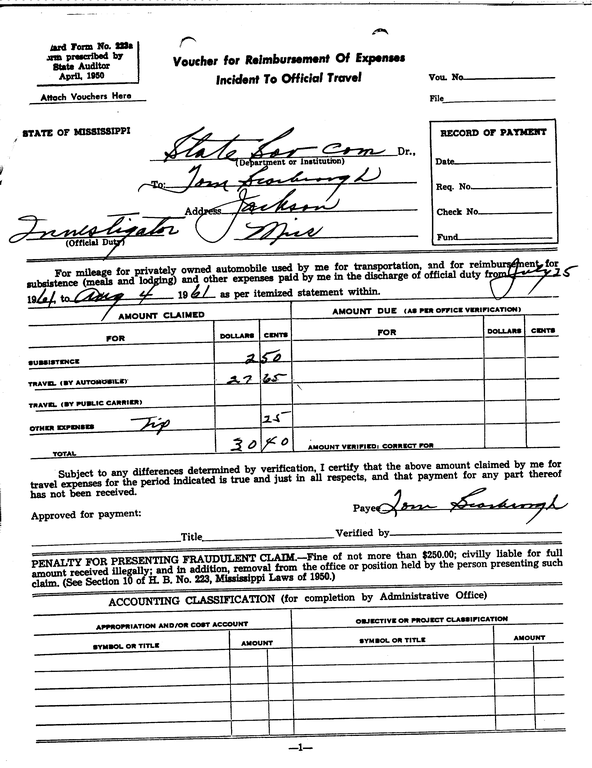 ard Form No. 223a
rm prescribed by
State Auditor
April, 1950
Attach Vouchers Here
Voucher for Reimbursement Of Expenses
Incident To Official Travel
Vou. No.
File
STATE OF MISSISSIPPI
State Sov Com Dr.,
(Department or Institution)
To: Tom Scarbrough
Address Jackson
Investigator Miss
(Official Duty)
RECORD OF PAYMENT
Date
Req. No.
Check No.
Fund
For mileage for privately owned automobile used by me for transportation, and for reimbursement for
subsistence (meals and lodging) and other expenses paid by me in the discharge of official duty from July 25
1961, to Aug 4 1961 as per itemized statement within.
AMOUNT CLAIMED
AMOUNT DUE (AS PER OFFICE VERIFICATION)
FOR DOLLARS CENTS FOR DOLLARS CENTS
SUBSISTENCE 2 50
TRAVEL (BY AUTOMOBILE) 27 65
TRAVEL (BY PUBLIC CARRIER)
OTHER EXPENSES Tip 25
TOTAL 30 40 AMOUNT VERIFIED: CORRECT FOR
Subject to any differences determined by verification, I certify that the above amount claimed by me for
travel expenses for the period indicated is true and just in all respects, and that payment for any part thereof
has not been received.
Payee Tom Scarbrough
Approved for payment:
Title Verified by
PENALTY FOR PRESENTING FRAUDULENT CLAIM.—Fine of not more than $250.00; civilly liable for full
amount received illegally; and in addition, removal from the office or position held by the person presenting such
claim. (See Section 10 of H. B. No. 223, Mississippi Laws of 1950.)
ACCOUNTING CLASSIFICATION (for completion by Administrative Office)
APPROPRIATION AND/OR COST ACCOUNT
OBJECTIVE OR PROJECT CLASSIFICATION
SYMBOL OR TITLE AMOUNT SYMBOL OR TITLE AMOUNT
—1—